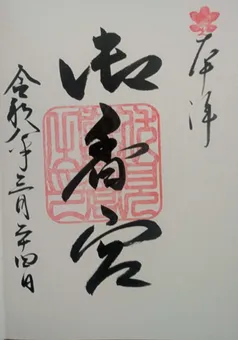 奉拝
御香宮
令和八年三月二十四日